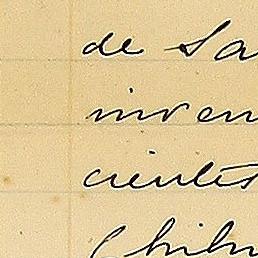 de Sa
inven
cientes
Chihu